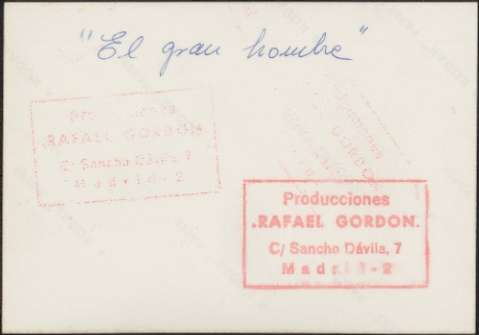 "El gran hombre"
Producciones
RAFAEL GORDON
C/ Sancho Dávila, 7
Madrid - 2
Producciones
.RAFAEL GORDON.
C/ Sancho Dávila, 7
Madrid - 2